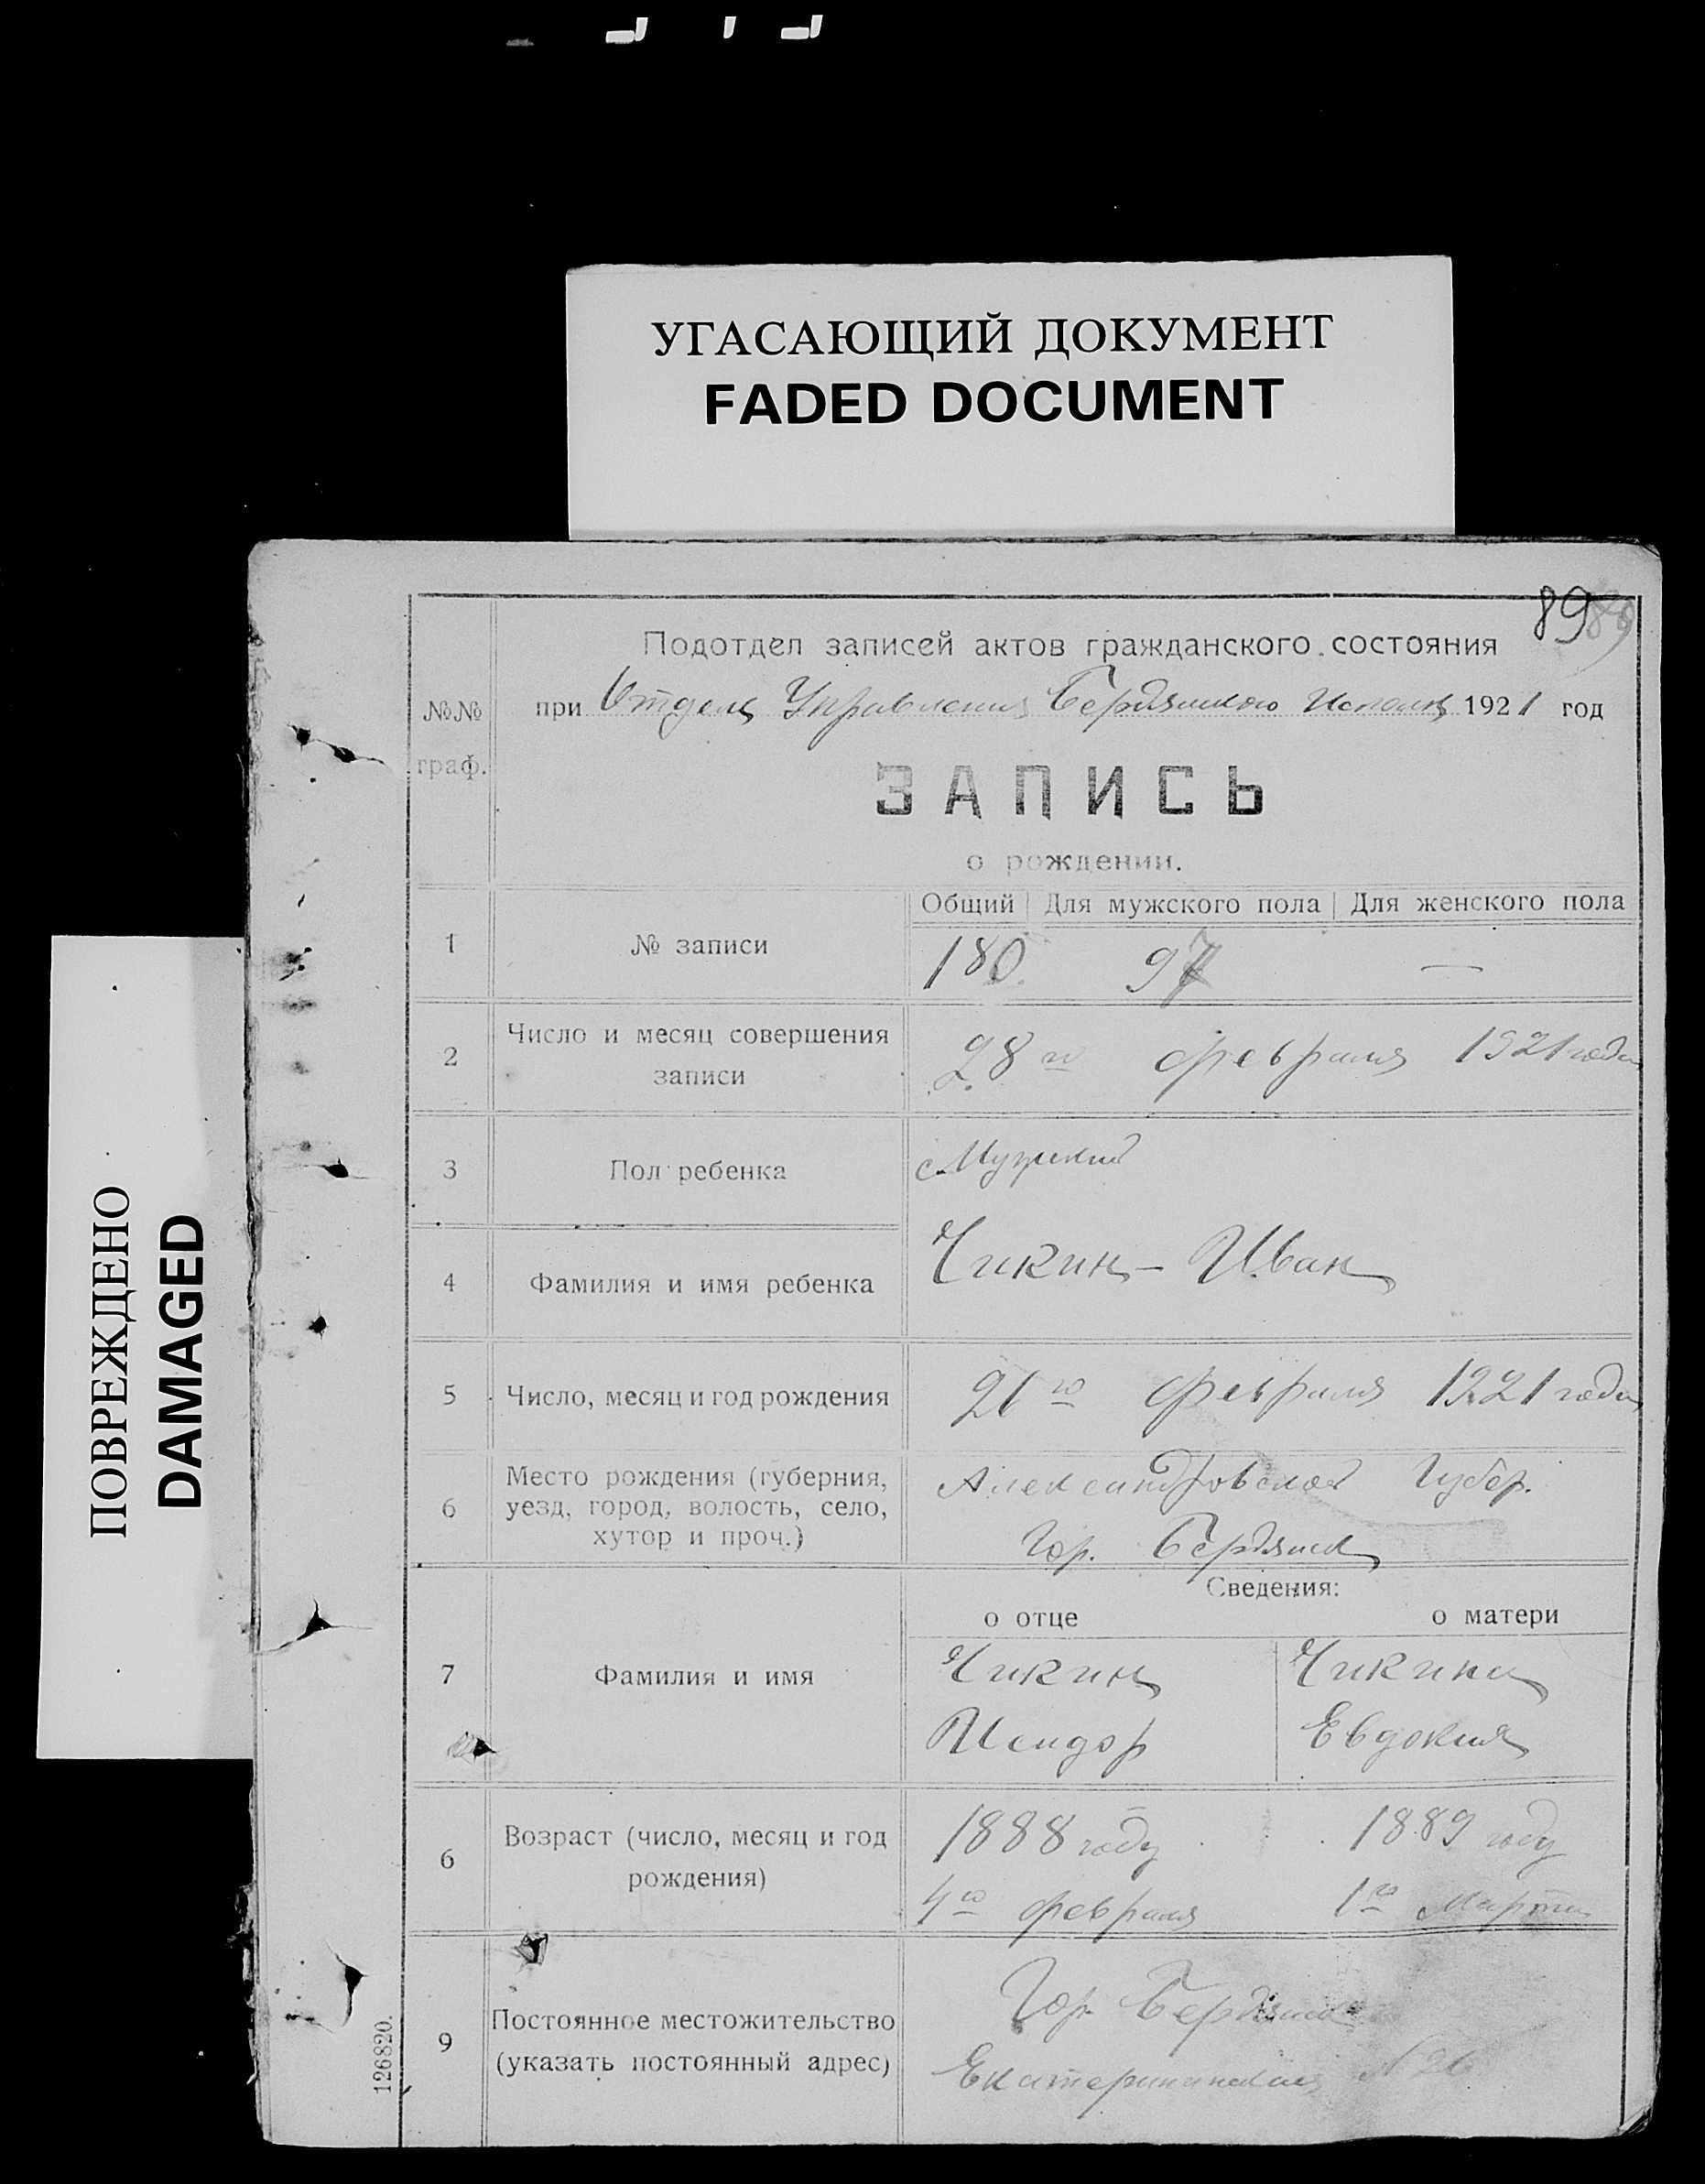 УГАСАЮЩИЙ ДОКУМЕНТ
FADED DOCUMENT
ПОВРЕЖДЕНО
DAMAGED
89 89
Подотдел записей актов гражданского состояния
№№ граф.
при Отделе Управления Бердянского Исполк 1921 год
ЗАПИСЬ
о рождении.
Общий Для мужского пола Для женского пола
1 № записи 180. 97 —
2 Число и месяц совершения записи 28го февраля 1921 года
3 Пол ребенка Мужской
4 Фамилия и имя ребенка Чикин - Иван
5 Число, месяц и год рождения 21го февраля 1921 года
6 Место рождения (губерния, уезд, город, волость, село, хутор и проч.) Александровской Губер.
Гор. Бердянск
Сведения:
о отце о матери
7 Фамилия и имя Чикин Чикина
Исидор Евдокия
6 Возраст (число, месяц и год рождения) 1888 году 1889 году
4го февраля 1го Марта
9 Постоянное местожительство (указать постоянный адрес) Гор. Бердянск
Екатерининская №
126820.